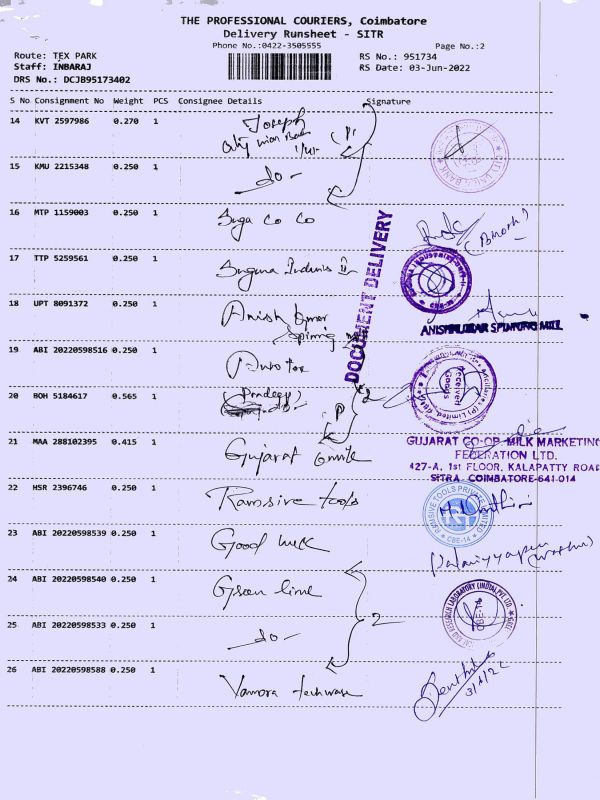 THE PROFESSIONAL COURIERS, Coimbatore
Delivery Runsheet - SITR
Phone No.:0422-3505555
Page No.:2
Route: TEX PARK
RS No.: 951734
Staff: INBARAJ
RS Date: 03-Jun-2022
DRS No.: DCJB95173402
S No Consignment No Weight PCS Consignee Details Signature
14 KVT 2597986 0.270 1 Joseph
15 KMU 2215348 0.250 1 -do-
16 MTP 1159003 0.250 1 Suga Co Co
17 TTP 5259561 0.250 1 Suguna
18 UPT 8091372 0.250 1 Anish Kumar
Spinning
DOCUMENT DELIVERY
ANISHKUMAR SPINNING MILL
19 ABI 20220598516 0.250 1
Received
Goods
20 BOH 5184617 0.565 1
21 MAA 288102395 0.415 1 Gujarat
GUJARAT CO-OP-MILK MARKETING
FEDERATION LTD.
427-A, 1st FLOOR, KALAPATTY ROAD
SITRA, COIMBATORE-641 014
22 HSR 2396746 0.250 1 Ramsive tools
RAMSIVE TOOLS PRIVATE LIMITED
RT
CBE-14
23 ABI 20220598539 0.250 1 Good luck
24 ABI 20220598540 0.250 1 Green line
2
25 ABI 20220598533 0.250 1 -do-
26 ABI 20220598588 0.250 1 Vamora